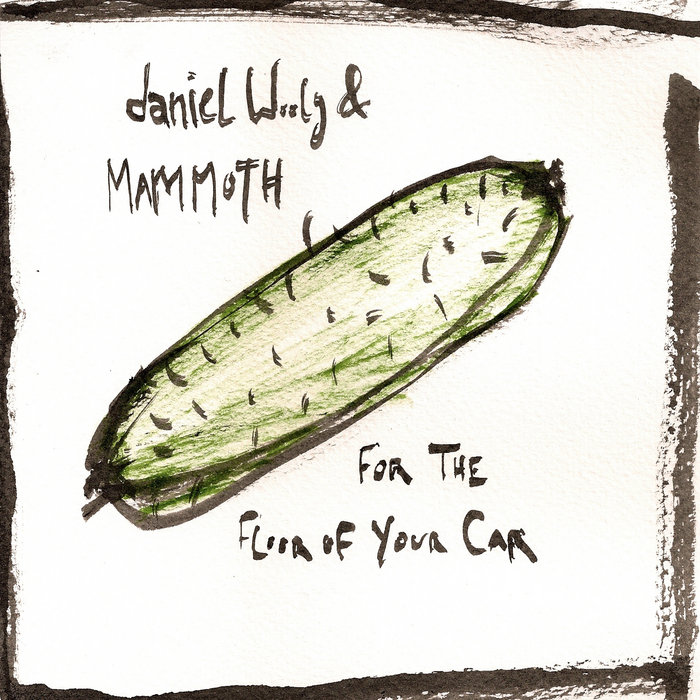 daniel Wooly &
MAMMOTH
FOR THE
FLOOR OF YOUR CAR